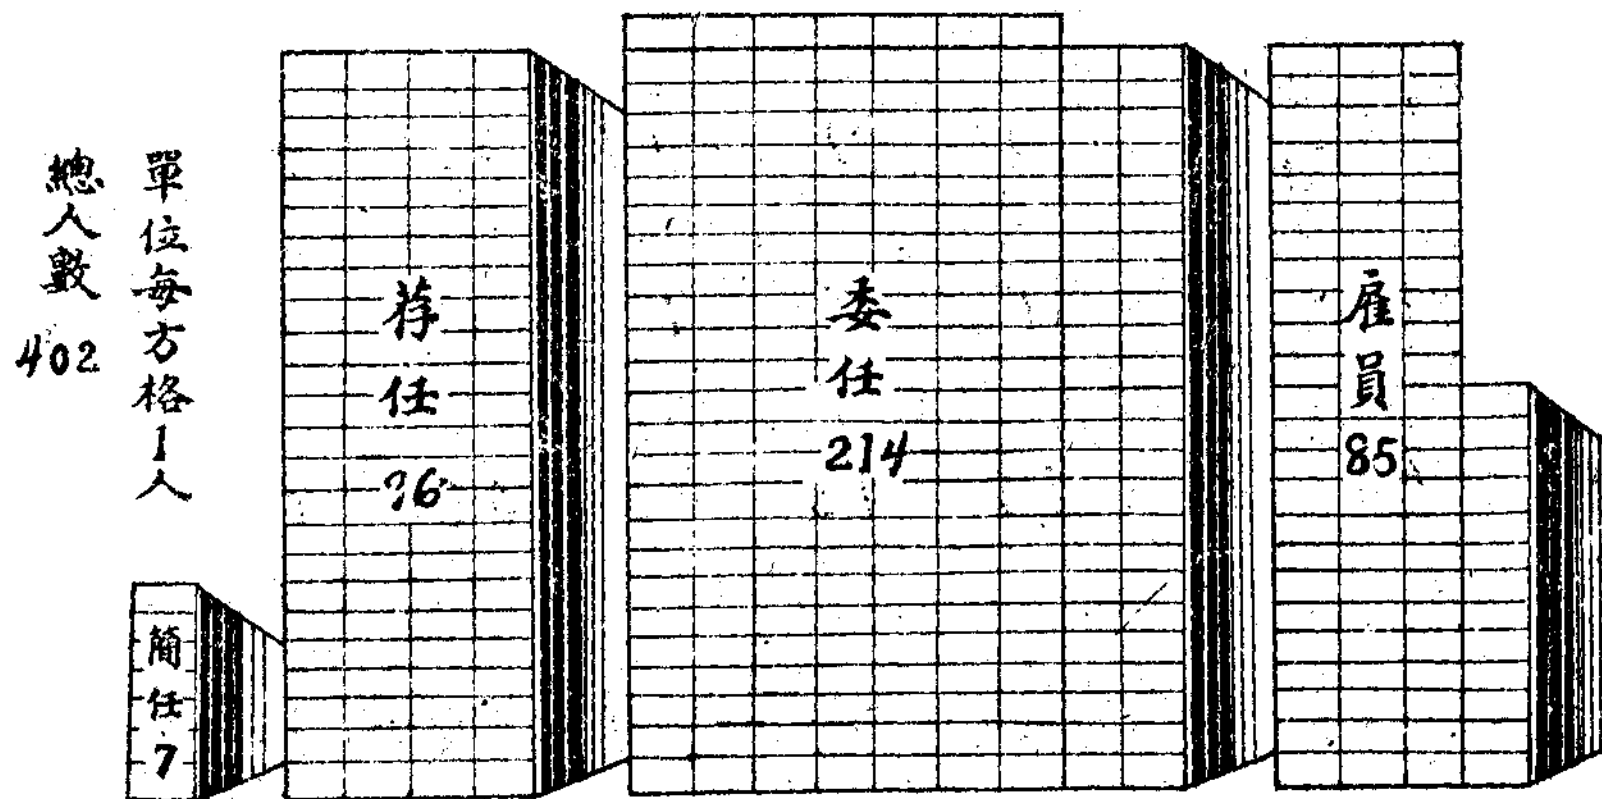 單位每方格1人
總人數 402
簡任 7
荐任 96
委任 214
雇員 85